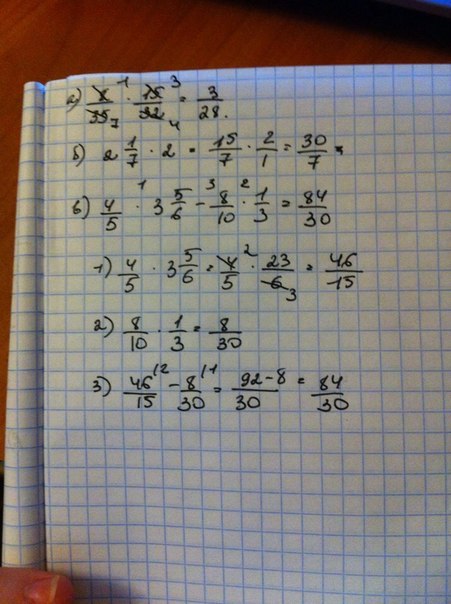 а) 8/35 7 · 1 15/32 4 3 = 3/28.
б) 2 1/7 · 2 = 15/7 · 2/1 = 30/7
в) 4/5 ·¹ 3 5/6 -³ 8/10 ·² 1/3 = 84/30
1) 4/5 · 3 5/6 = 4/5 ² · 23/6 3 = 46/15
2) 8/10 · 1/3 = 8/30
3) 46/15 /2 - 8/30 /1 = 92-8/30 = 84/30